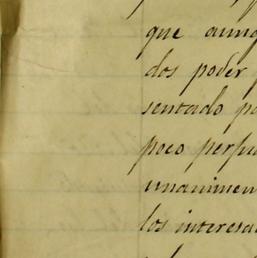 que aunq
dos poder
sentado po
poco perju
unanimem
los interesa